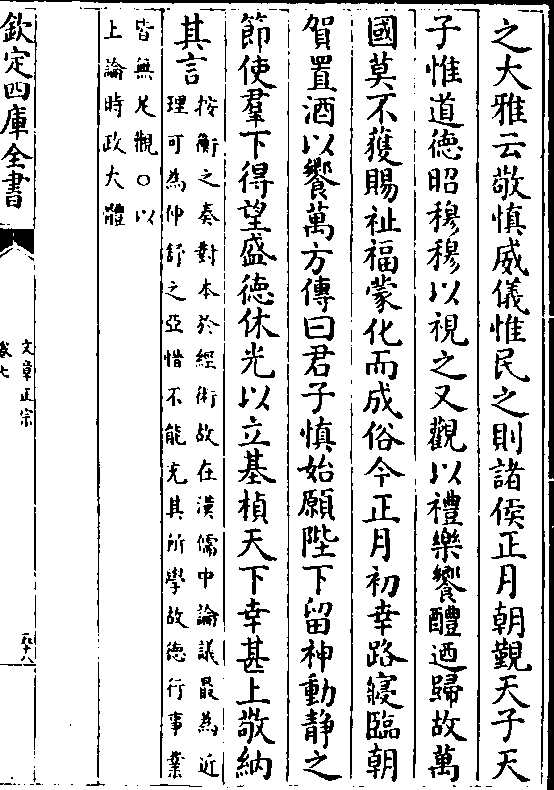 之大雅云敬慎威儀惟民之則諸侯正月朝覲天子天
子惟道德昭穆穆以視之又觀以禮樂饗醴迺歸故萬
國莫不獲賜祉福蒙化而成俗今正月初幸路寢臨朝
賀置酒以饗萬方傳曰君子慎始願陛下留神動靜之
節使羣下得望盛徳休光以立基楨天下幸甚上敬納
其言
按衡之奏對本於經術故在漢儒中論議最為近
理可為仲舒之亞惜不能充其所學故徳行事業
皆無足觀○以
上論時政大體
欽定四庫全書
文章正宗
卷七